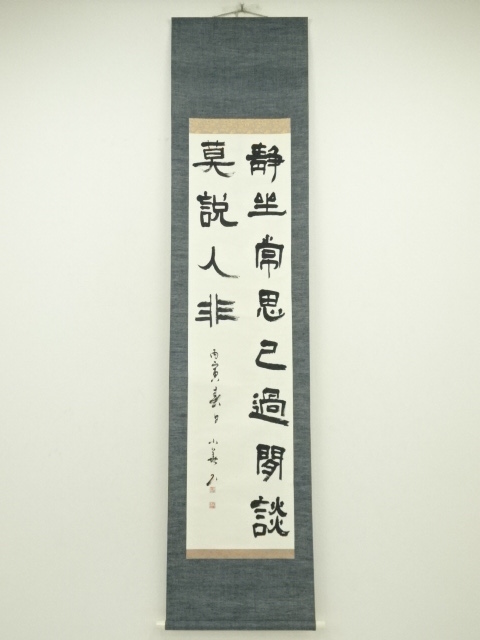 靜坐常思己過閒談
莫説人非
丙寅春日 小